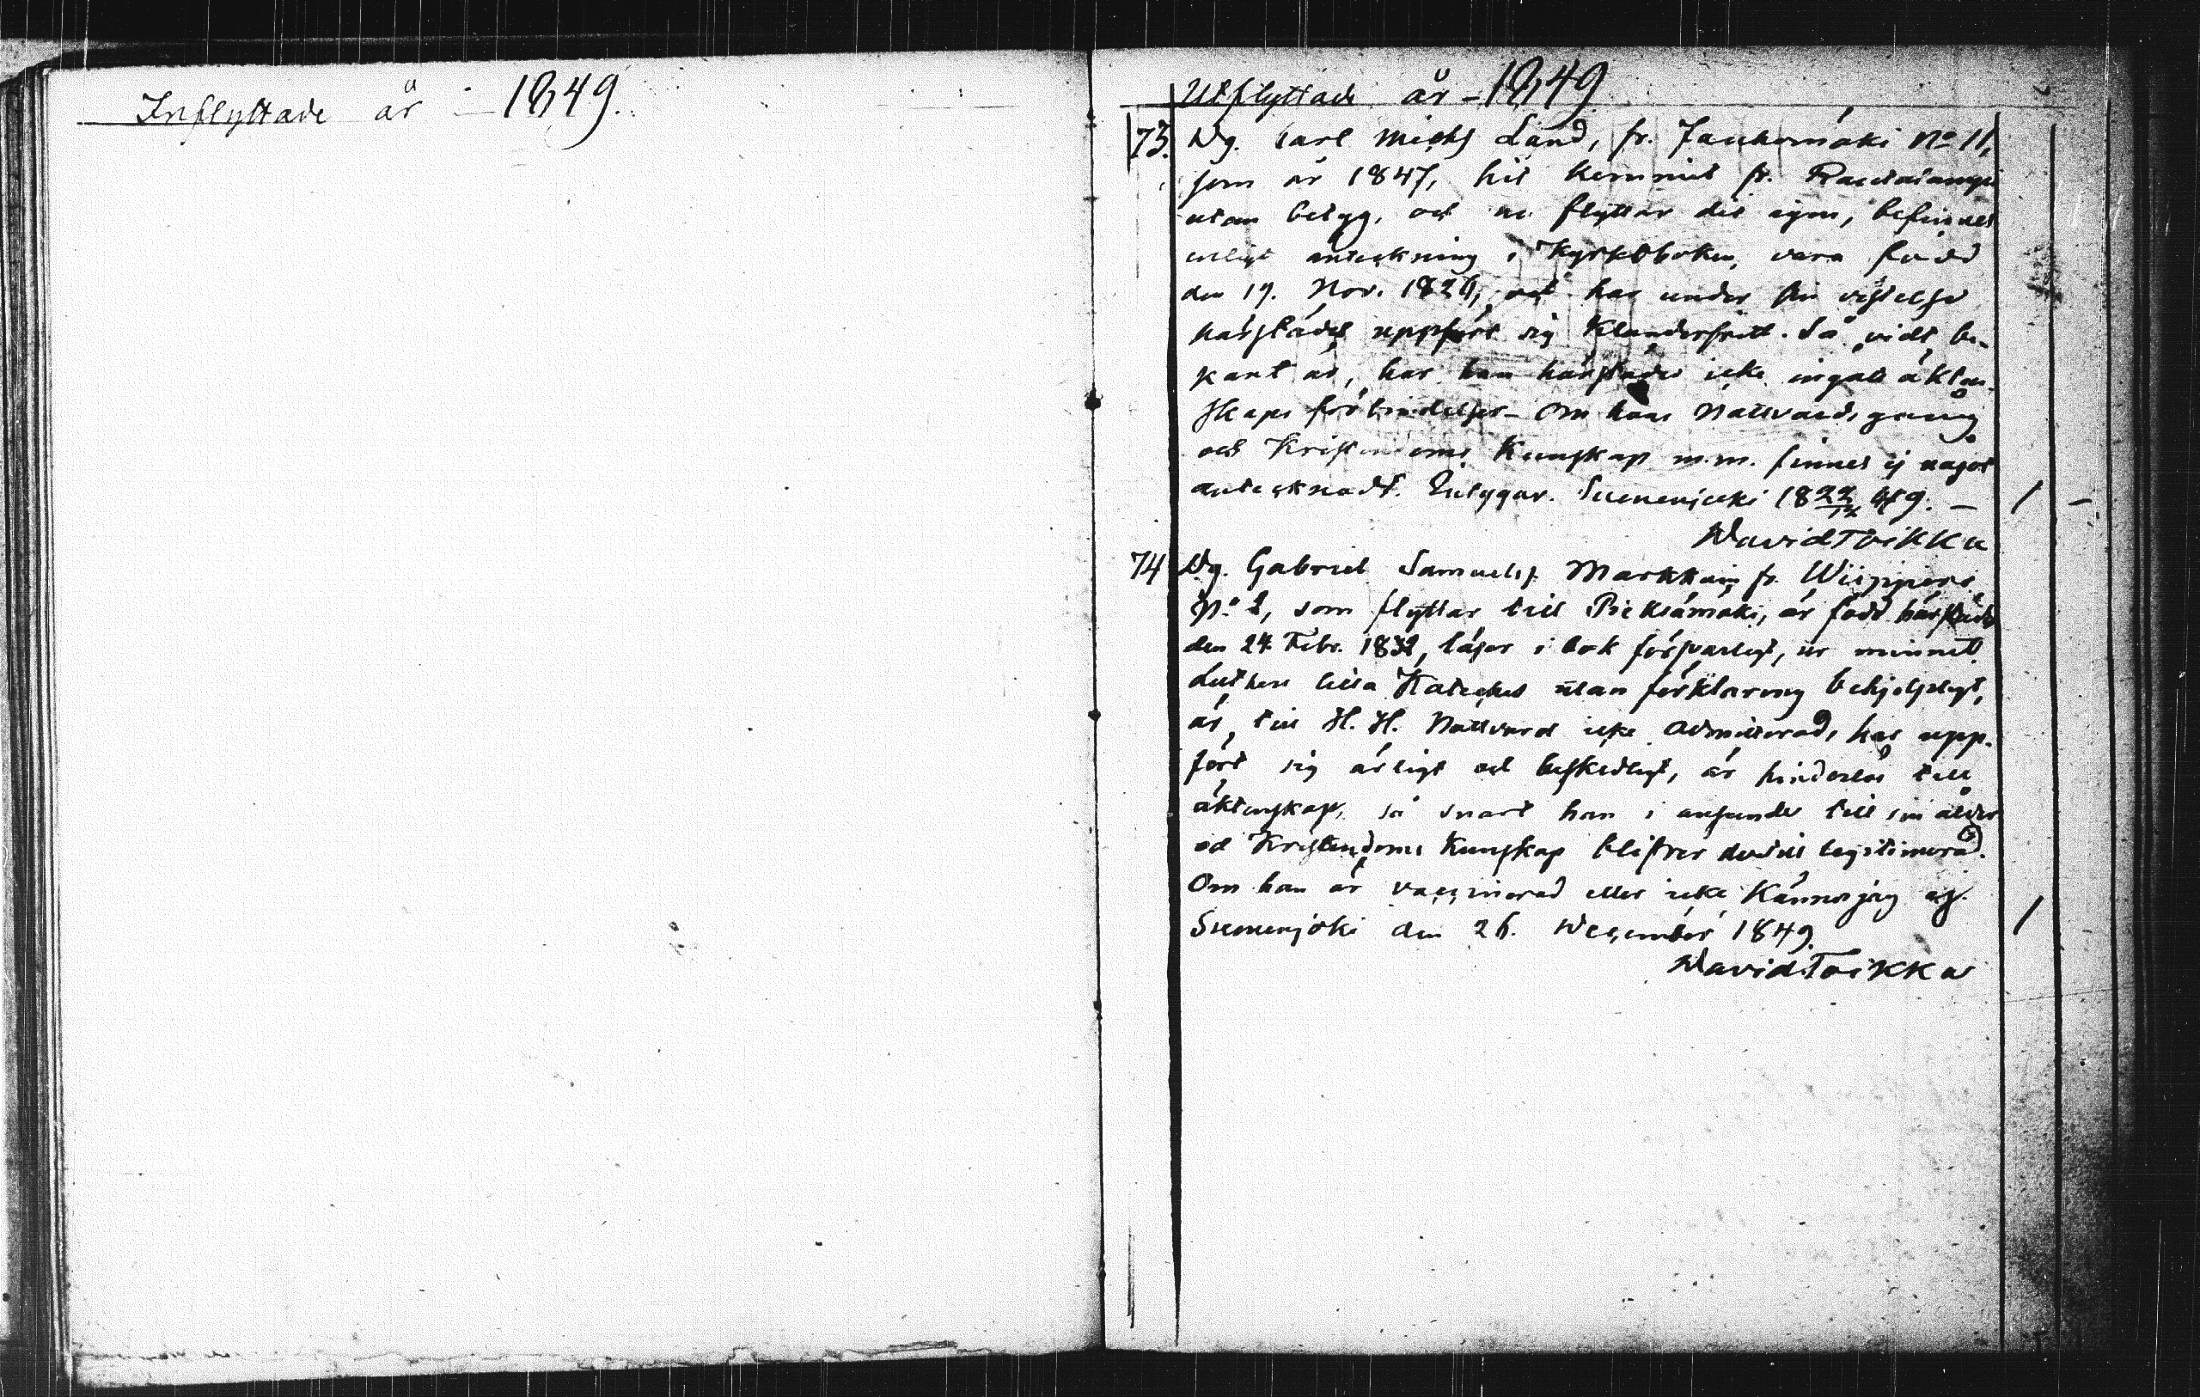 Inflyttade år - 1849.
Utflyttade år - 1849
73. Dg. Carl Michs Land, fr. Jauhomäki No 11,
som år 1847, hit kommit fr. Rautalampi
utan betyg, och nu flyttar dit igen, befinnes
enligt anteckning i Kyrkoboken, vara född
den 19. Nov. 1826, och har under sin vistelse
härstädes uppfört sig klanderfritt. Så vidt be-
kant är, har han härstädes icke ingått äkten-
skaps förbindelser - Om hans Nattvards gång
och Kristendoms Kunskap m.m. finnes ej något
antecknadt. Intygar. Suonenjoki 18 22/12 49. - 1 -
David Toikka
74 Dg. Gabriel Samuelss. Markkain fr. Wiipperi
No 2, som flyttar till Pieksämäki, är född härstädes
den 24 Febr. 1832, läser i bok försvarligt, ur minnet
Lutheri lilla Kateches utan förklaring behjelpligt,
är till H. H. Nattvard icke admitterad, har upp-
fört sig ärligt och beskedligt, är hinderlös till
äktenskap, så snart han i anseende till sin ålder
och Kristendoms Kunskap blifver dertill legitimerad.
Om han är vaccinerad eller icke Känner jag ej.
Suonenjoki den 26. December 1849. 1
David Toikka